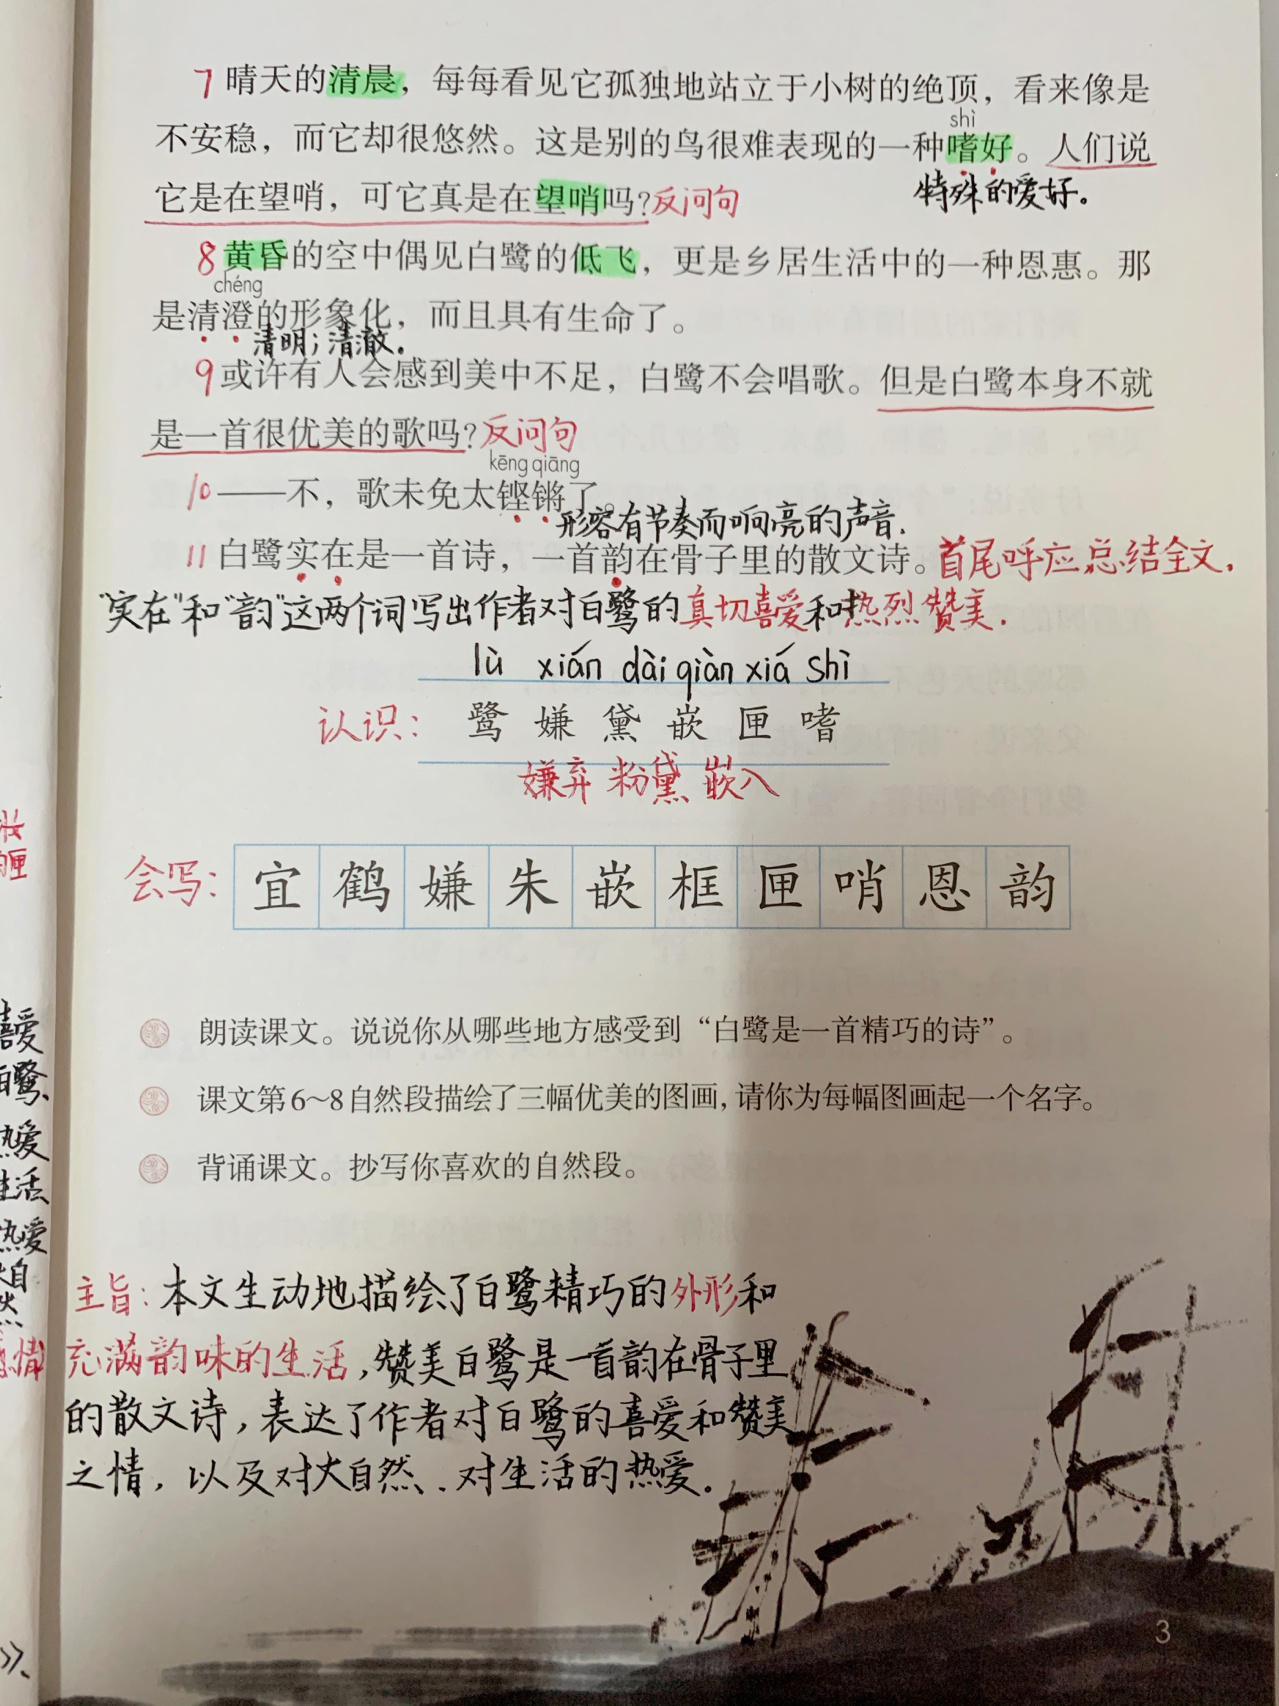 7 晴天的清晨，每每看见它孤独地站立于小树的绝顶，看来像是
shì
不安稳，而它却很悠然。这是别的鸟很难表现的一种嗜好。人们说
特殊的爱好。
它是在望哨，可它真是在望哨吗？反问句
8 黄昏的空中偶见白鹭的低飞，更是乡居生活中的一种恩惠。那
chéng
是清澄的形象化，而且具有生命了。
清明；清澈。
9 或许有人会感到美中不足，白鹭不会唱歌。但是白鹭本身不就
是一首很优美的歌吗？反问句
kēng qiāng
10 ——不，歌未免太铿锵了。
形容有节奏而响亮的声音.
11 白鹭实在是一首诗，一首韵在骨子里的散文诗。首尾呼应 总结全文.
"实在"和"韵"这两个词写出作者对白鹭的真切喜爱和热烈赞美.
lù xián dài qiàn xiá shì
认识： 鹭 嫌 黛 嵌 匣 嗜
嫌弃 粉黛 嵌入
会写： 宜 鹤 嫌 朱 嵌 框 匣 哨 恩 韵
朗读课文。说说你从哪些地方感受到“白鹭是一首精巧的诗”。
课文第6～8自然段描绘了三幅优美的图画，请你为每幅图画起一个名字。
背诵课文。抄写你喜欢的自然段。
主旨：本文生动地描绘了白鹭精巧的外形和
充满韵味的生活，赞美白鹭是一首韵在骨子里
的散文诗，表达了作者对白鹭的喜爱和赞美
之情，以及对大自然、对生活的热爱.
3
喜爱
白鹭、
热爱
生活、
热爱
大自
然
感情